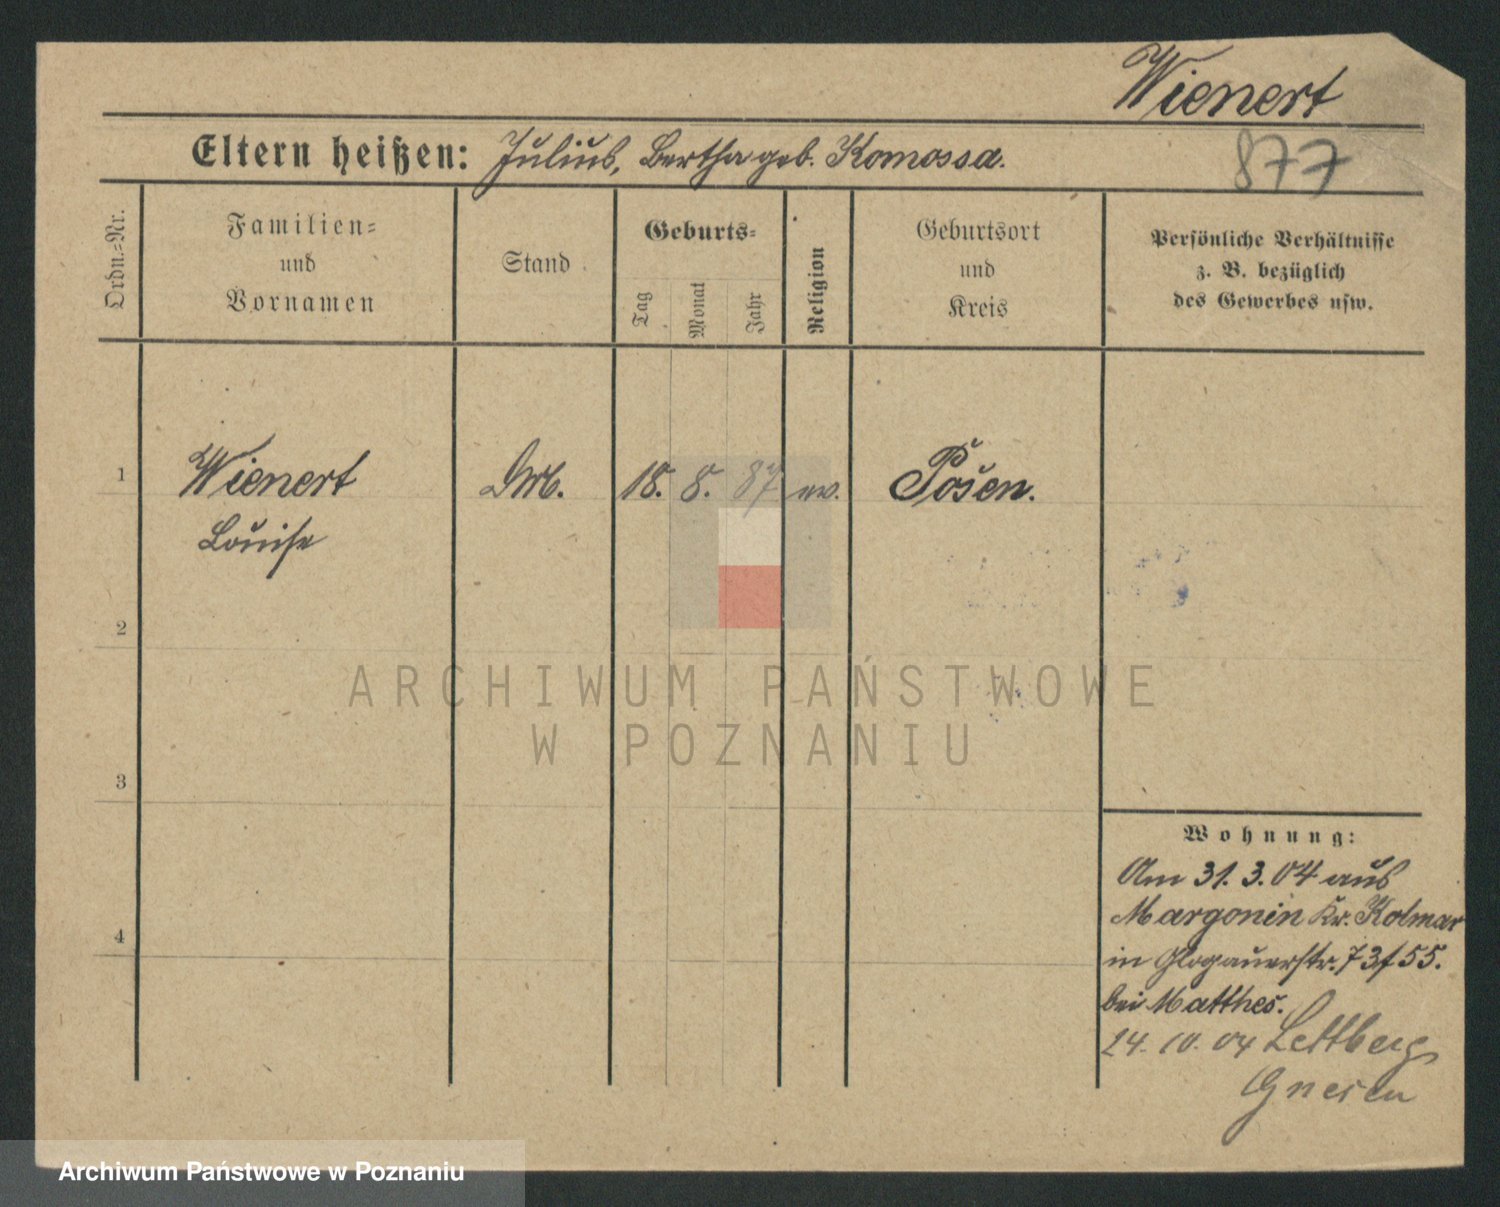 Wienert
Eltern heißen: Julius, Bertha geb. Komossa.
877
Ordn.=Nr.
Familien=
und
Vornamen
Stand
Geburts=
Tag
Monat
Jahr
Religion
Geburtsort
und
Kreis
Persönliche Verhältnisse
z. B. bezüglich
des Gewerbes usw.
1 Wienert 18. 8. 87 ev. Posen.
Louise
2
3
4
Wohnung:
Am 31. 3. 04 aus
Margonin Kr. Kolmar
in Glogauerstr. 73/55.
bei Matthes.
24. 10. 04 Lettberg
Gnesen
ARCHIWUM PAŃSTWOWE
W POZNANIU
Archiwum Państwowe w Poznaniu